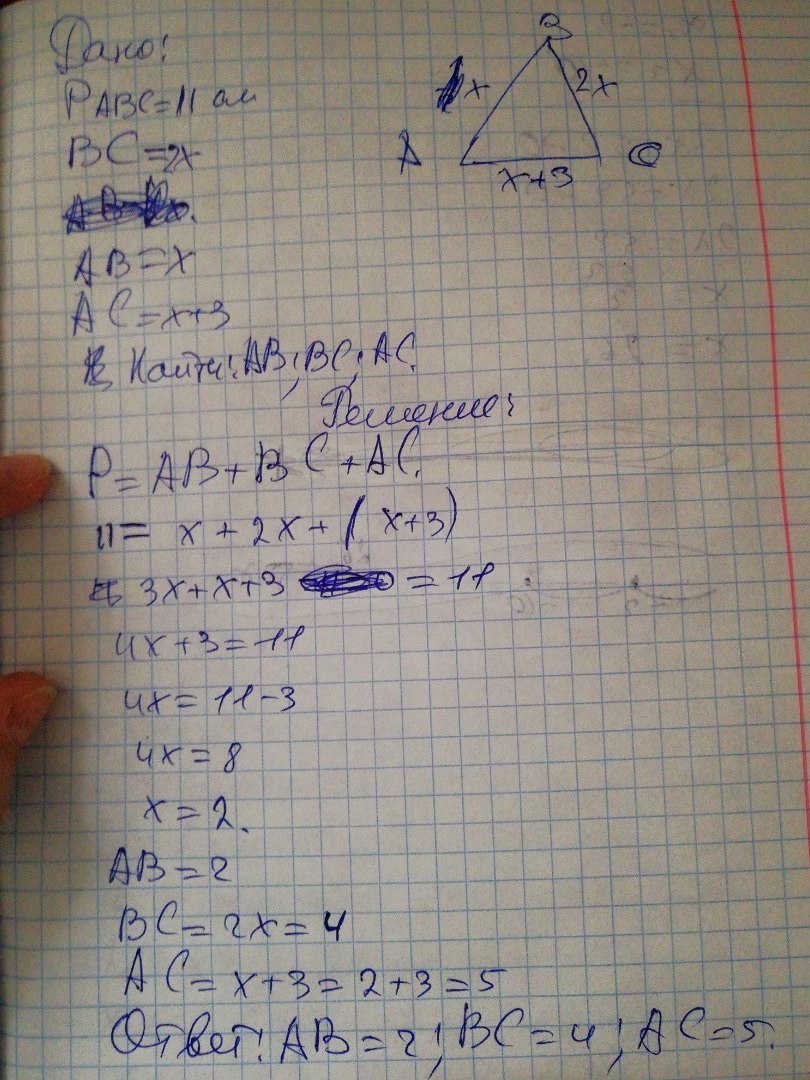 Дано:
PABC=11 см
BC=2x
AB=x
AC=x+3
B
x
2x
A
C
x+3
Найти: AB; BC; AC.
Решение:
P=AB+BC+AC.
11= x+2x+(x+3)
3x+x+3 =11
4x+3=11
4x=11-3
4x=8
x=2.
AB=2
BC=2x=4
AC=x+3=2+3=5
Ответ: AB=2; BC=4; AC=5.